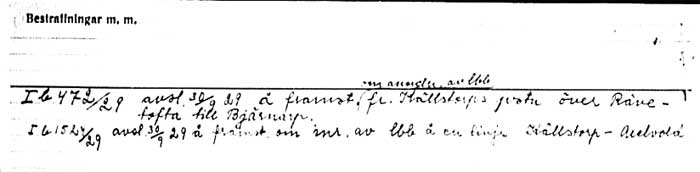 Bestraffningar m. m.
om anordn. av lbb
I b 472/29 avsl. 30/9 29 å framst. fr. Källstorps gata över Räve-
tofta till Bjärnarp.
I b 1524/29 avsl. 30/9 29 å framst. om inr. av lbb å en linje Källstorp - Axelvold